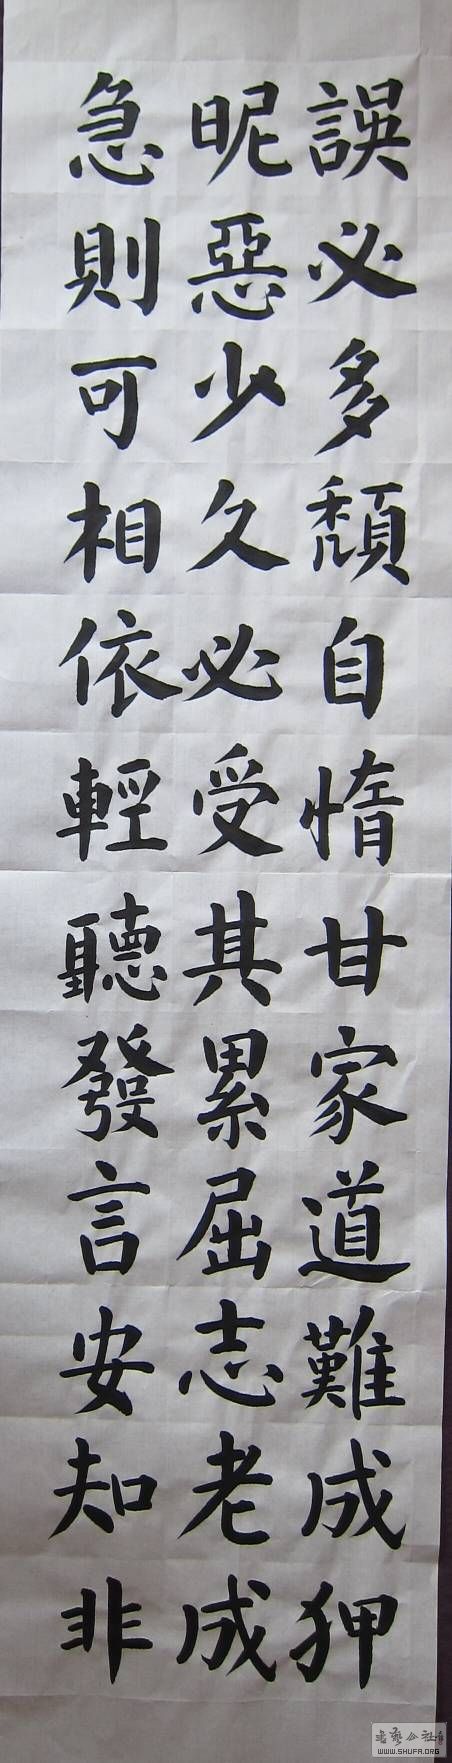 誤必多頹自惰甘家道難成狎
昵惡少久必受其累屈志老成
急則可相依輕聽發言安知非
書藝公社
WWW.SHUFA.ORG